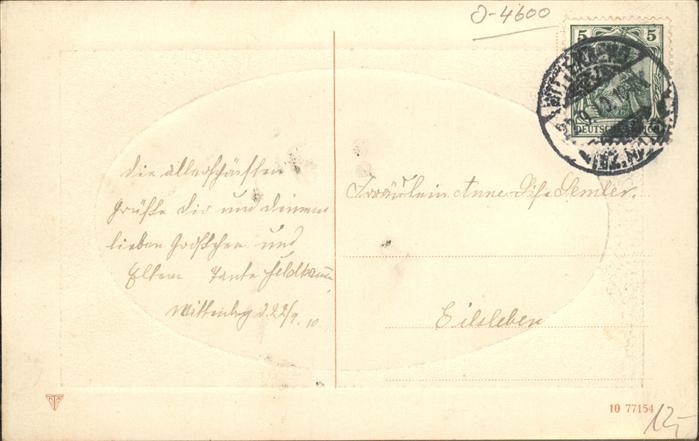 O-4600
5 5
DEUTSCHES REICH
Die allerschönsten
Grüße Dir und deinen
lieben Großchen und
Eltern Tante Feldkamm
Wittenbg d. 22/9. 10
Fräulein Anne Semler.
Eilsleben
10 77154
12,-